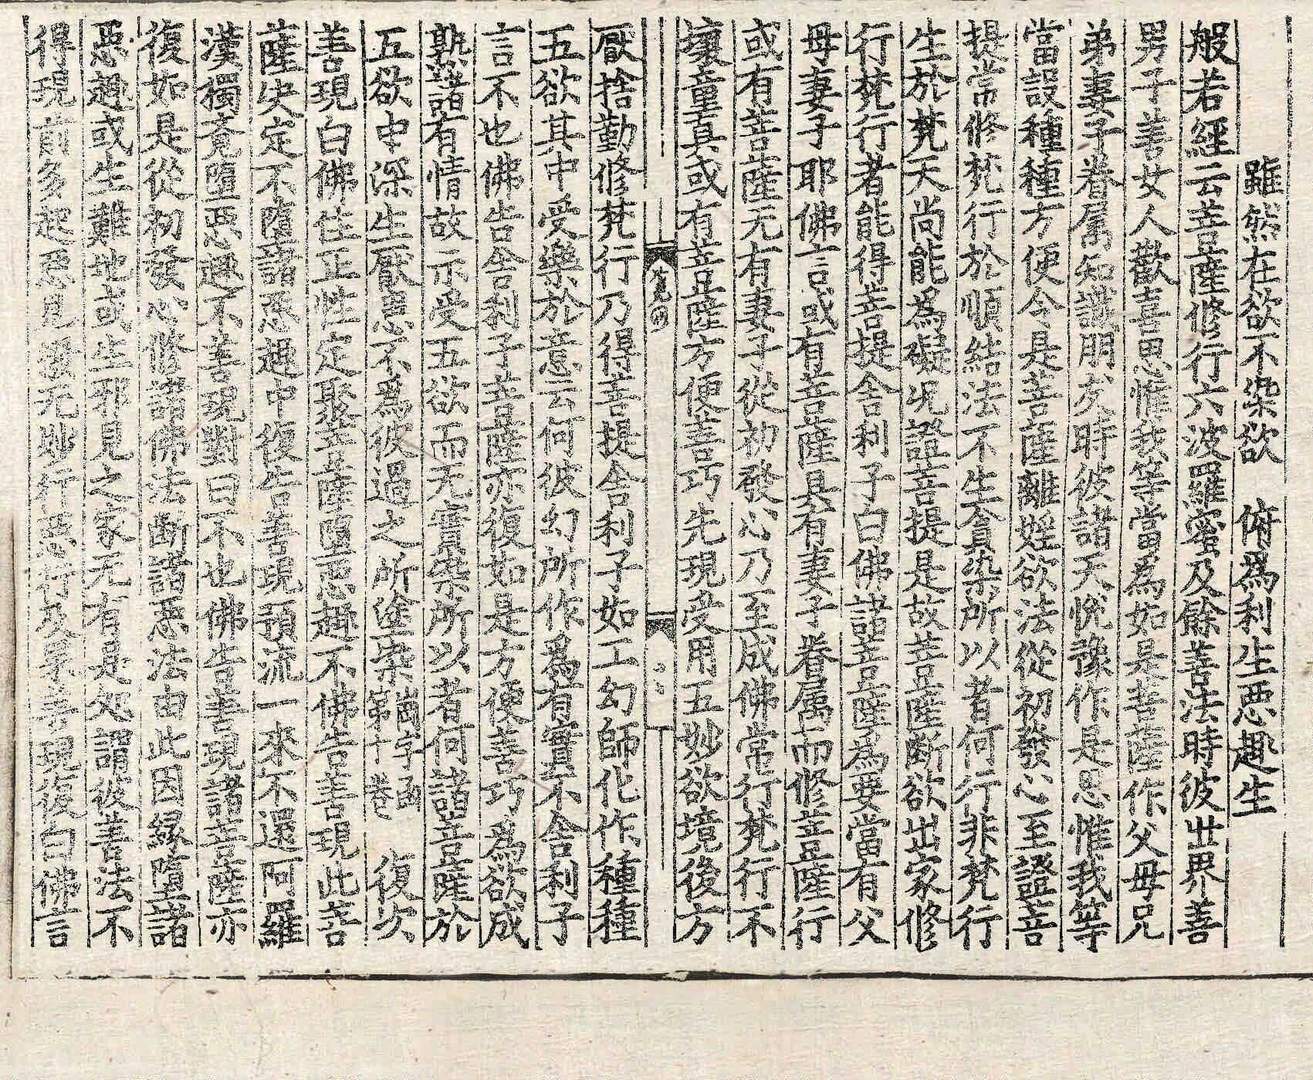 雖然在欲不染欲　俯為利生惡趣生
般若經云菩薩修行六波羅蜜及餘善法時彼世界善
男子善女人歡喜思惟我等當為如是菩薩作父母兄
弟妻子眷属知識朋友時彼諸天悅豫作是思惟我等
當設種種方便令是菩薩離婬欲法從初發心至證菩
提常修梵行於順結法不生貪染所以者何行非梵行
生於梵天尚能為礙况證菩提是故菩薩断欲出家修
行梵行者能得菩提舍利子白佛諸菩薩為要當有父
母妻子耶佛言或有菩薩具有妻子眷属而修菩薩行
或有菩薩无有妻子從初發心乃至成佛常行梵行不
壞童真或有菩薩方便善巧先現受用五妙欲境後方
厭捨勤修梵行乃得菩提舍利子如工幻師化作種種
五欲其中受樂於意云何彼幻所作為有實不舍利子
言不也佛告舍利子菩薩亦復如是方便善巧為欲成
熟諸有情故示受五欲而无實染所以者何諸菩薩於
五欲中深生厭患不為彼過之所塗染崗字函第十卷　復次
善現白佛住正性定聚菩薩墮惡趣不佛告善現此菩
薩决定不墮諸惡趣中復告善現預流一來不還阿羅
漢獨覺墮惡趣不善現對曰不也佛告善現諸菩薩亦
復如是從初發心修諸佛法断諸惡法由此因緣墮諸
惡趣或生難地或生邪見之家无有是処謂彼善法不
得現前多起惡見撥无妙行惡行及果善現復白佛言